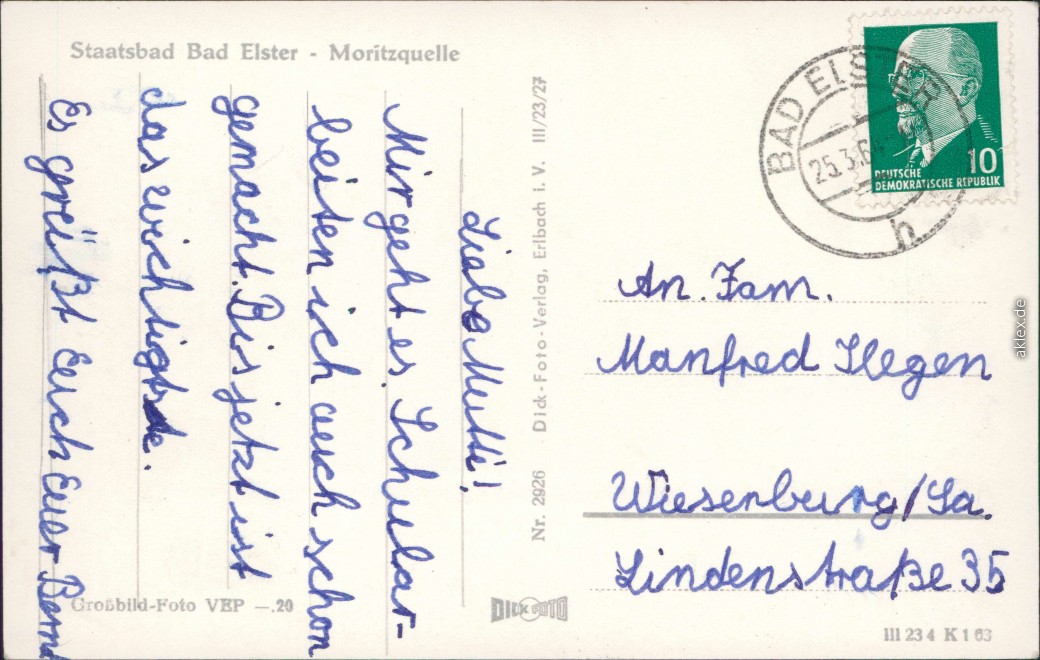 Staatsbad Bad Elster - Moritzquelle
Liebe Mutti!
Mir geht es. Schular-
beiten ich auch schon
gemacht. Bis jetzt ist
das wichtigste.
Es grüßt Euch Euer Bernd
Großbild-Foto VEP —.20
Nr. 2926 Dick-Foto-Verlag, Erlbach i. V. III/23/27
DICK FOTO
BAD ELSTER
25.3.64
h
10
DEUTSCHE
DEMOKRATISCHE REPUBLIK
An. Fam.
Manfred Illgen
Wiesenburg/Sa.
Lindenstraße 35
III 23 4 K 1 63
aklex.de